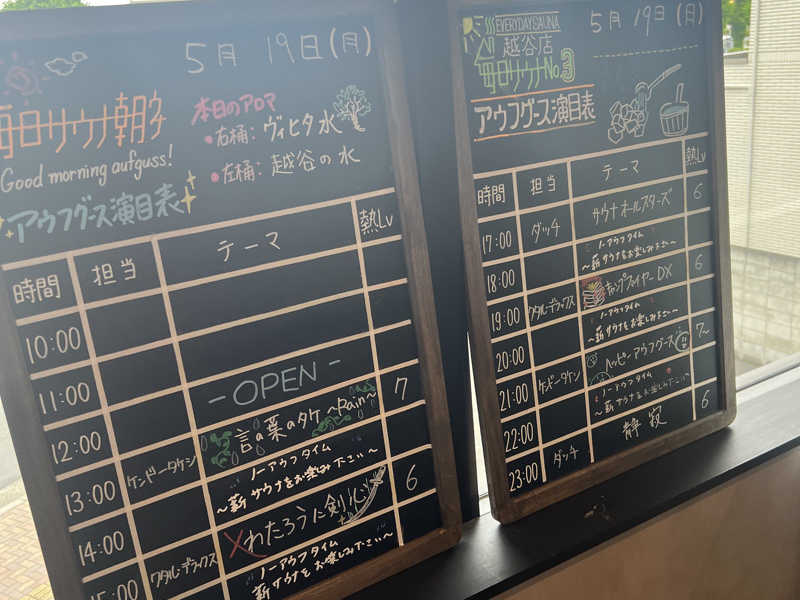 5月 19日(月)
毎日サウナ朝夕
Good morning aufguss!
アウフグース演目表
本日のアロマ
・右桶: ヴィヒタ水
・左桶: 越谷の水
時間 担当 テーマ 熱Lv
10:00
11:00 -OPEN-
12:00
13:00 ケンドータケシ 言の葉の夕ケ ~Rain~ 7
ノーアウフタイム
~薪サウナをお楽しみ下さい~
14:00
15:00 ワタル・デラックス わたろうに剣心 6
ノーアウフタイム
薪サウナをお楽しみ下さい~
EVERYDAY SAUNA
越谷店
毎日サウナNo.3
5月 19日(月)
アウフグース演目表
時間 担当 テーマ 熱Lv
17:00 ダッチ サウナオールスターズ 6
18:00 ノーアウフタイム
~薪サウナをお楽しみ下さい~
19:00 ワタル・デラックス キャンプファイヤーDX 6
20:00 ノーアウフタイム
~薪サウナをお楽しみ下さい~
21:00 ケンドータケシ ハッピーアウフグース 7~
22:00 ノーアウフタイム
~薪サウナをお楽しみ下さい~
23:00 ダッチ 静寂 6